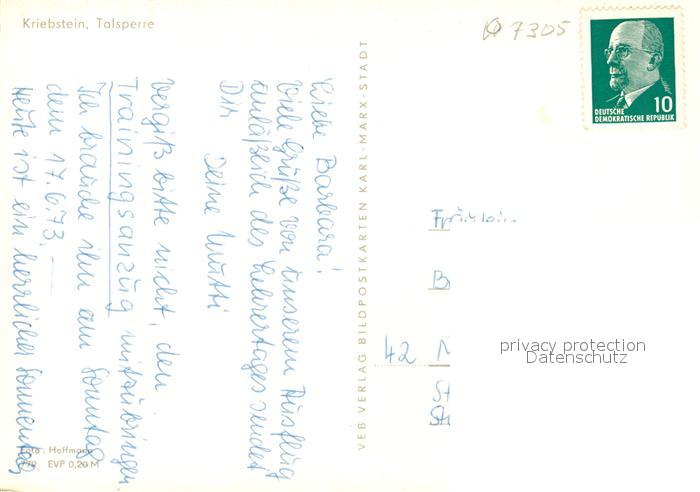 Kriebstein, Talsperre
7305
DEUTSCHE
DEMOKRATISCHE REPUBLIK
10
Liebe Barbara!
Viele Grüße von unserem Ausflug
anläßlich des Lehrertages sendet
Dir
Deine Mutti
Vergiß bitte nicht, den
Trainingsanzug mitzubringen
Ich brauche ihn am Sonntag
dem 17.6.73. —
Heute ist ein herrlicher Sonnentag
VEB VERLAG BILDPOSTKARTEN KARL-MARX-STADT
Fräulein
B
42 N
St
privacy protection
Datenschutz
Foto: Hoffmann
EVP 0,20 M